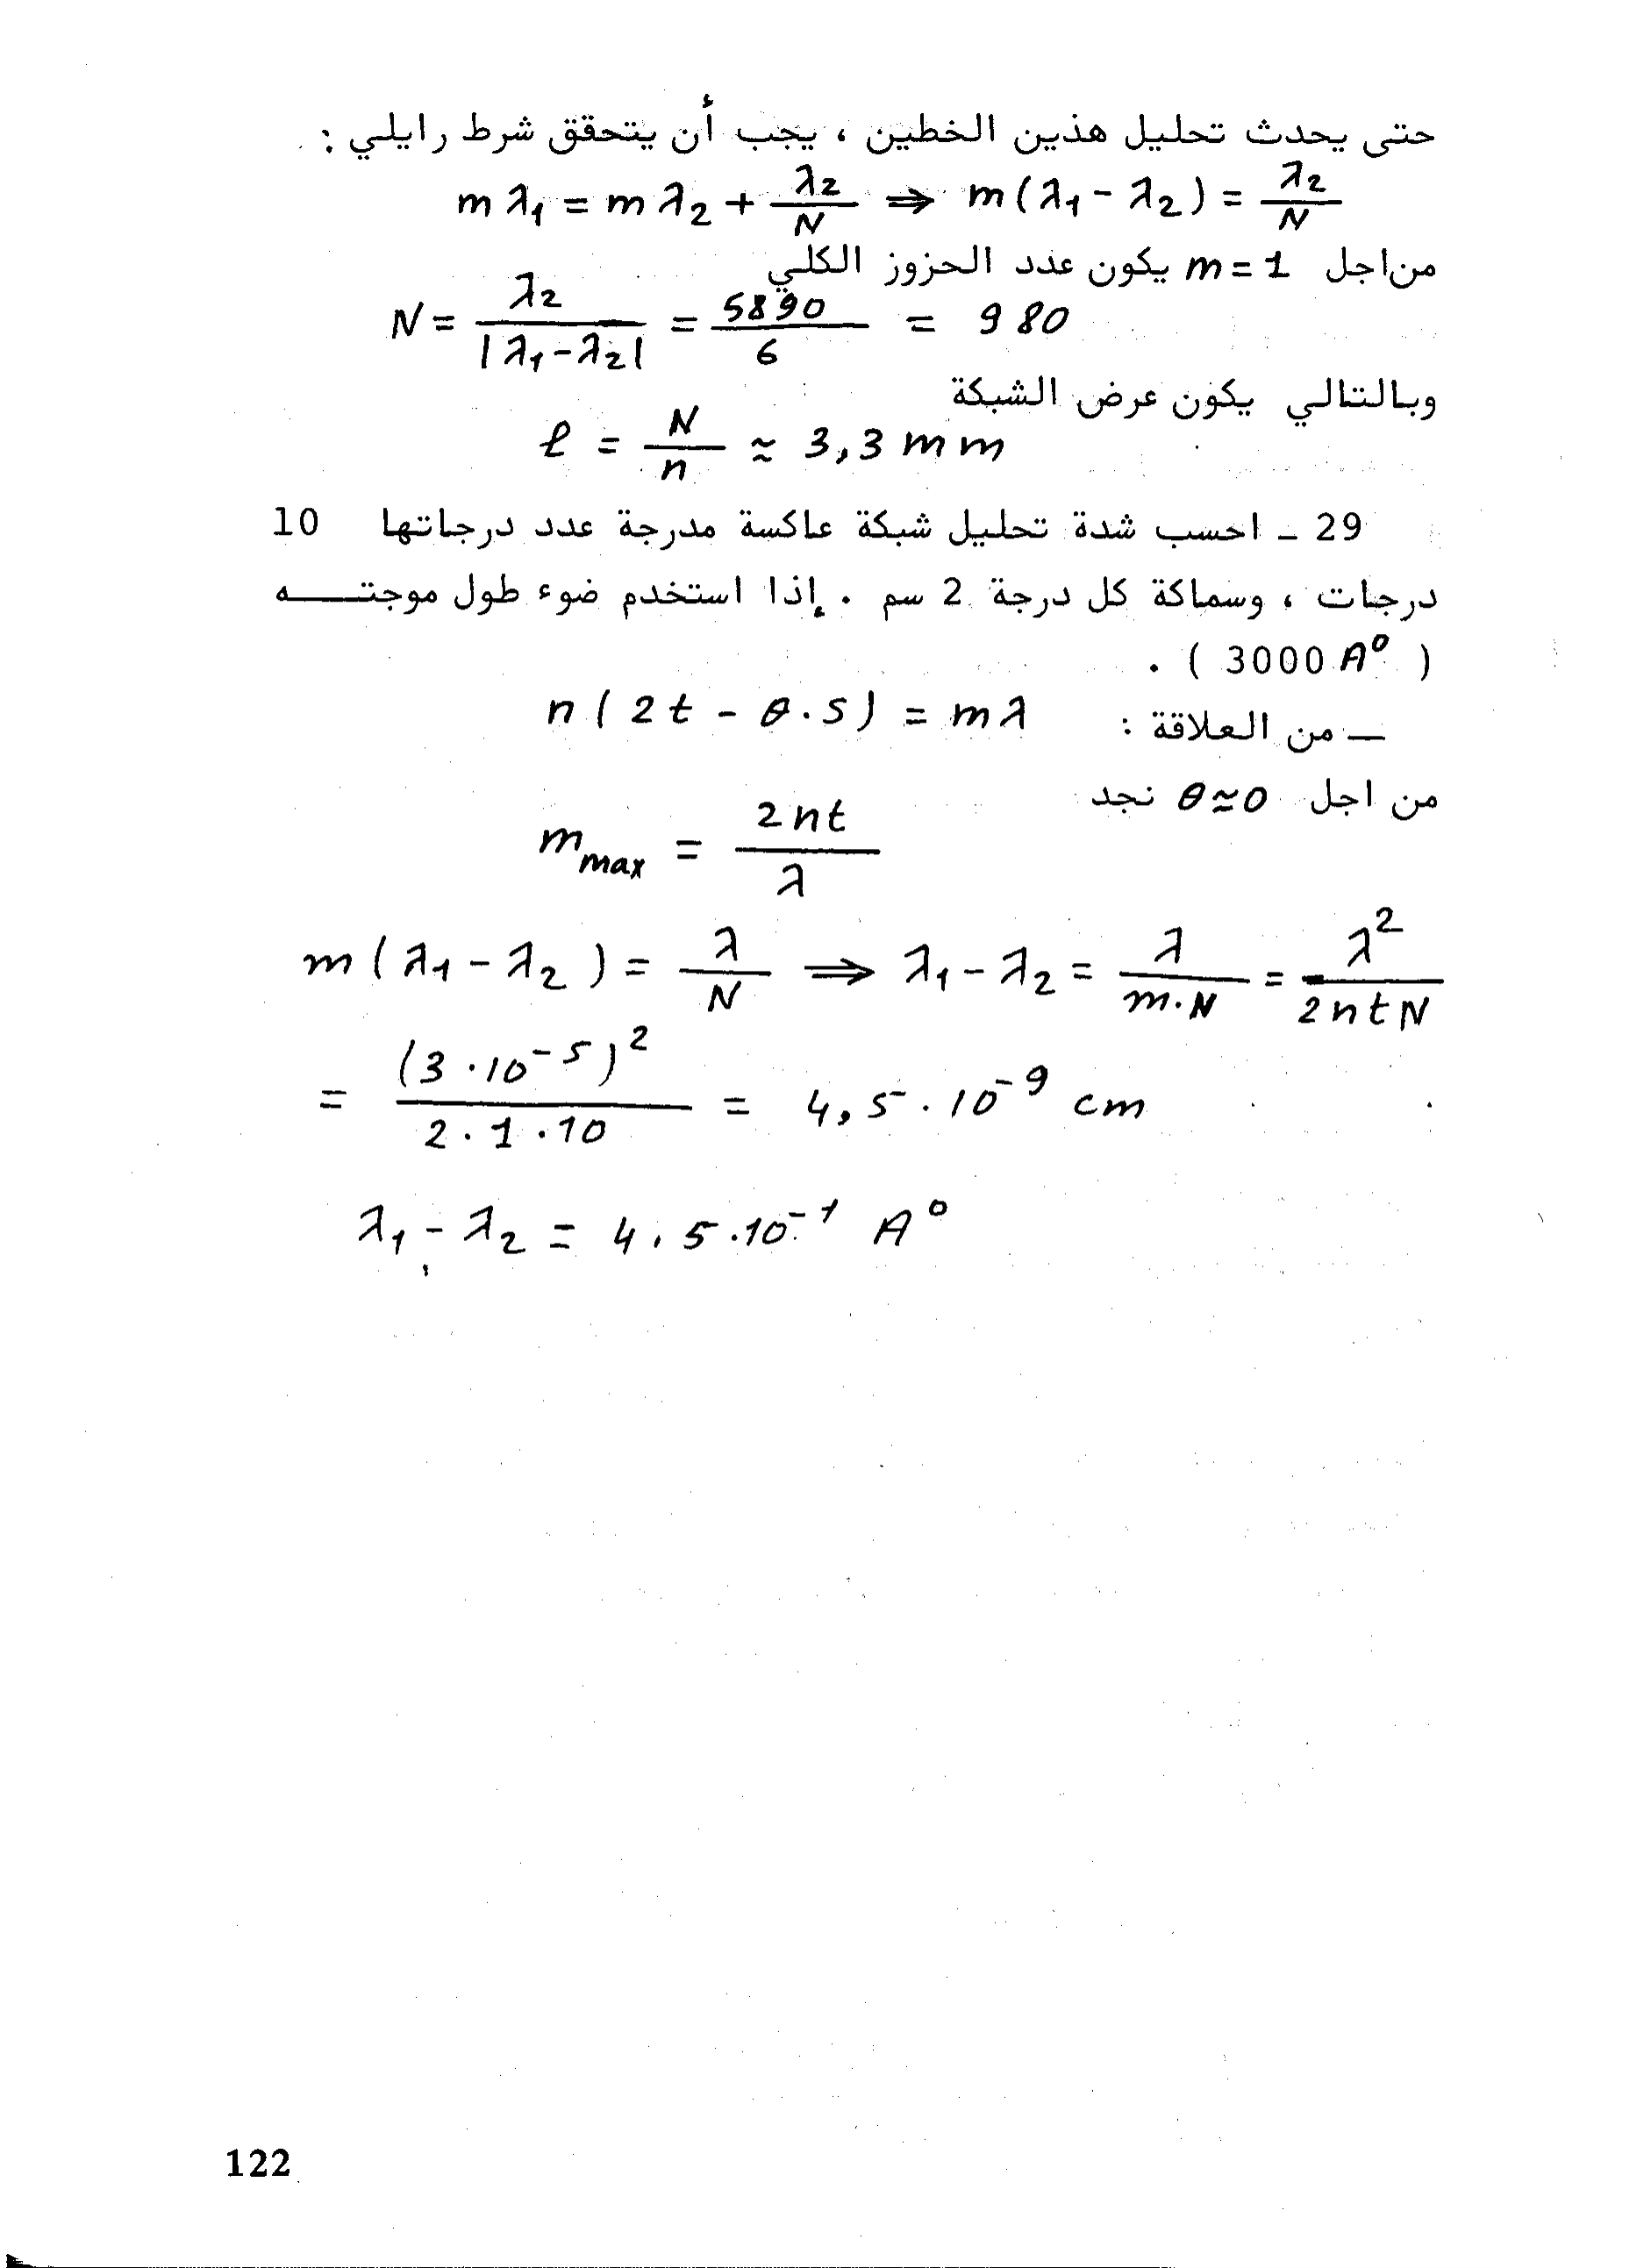 حتى يحدث تحليل هذين الخطين ، يجب أن يتحقق شرط رايلي :
m λ1 = m λ2 + λ2/N ⇒ m(λ1 - λ2) = λ2/N
من اجل m = 1 يكون عدد الحزوز الكلي
N = λ2/|λ1-λ2| = 5890/6 = 980
وبالتالي يكون عرض الشبكة
ℓ = N/n ≈ 3,3 mm
29 ـ احسب شدة تحليل شبكة عاكسة مدرجة عدد درجاتها 10
درجات ، وسماكة كل درجة 2 سم . إذا استخدم ضوء طول موجتـــه
( 3000 A° ) .
ـ من العلاقة : n ( 2t - θ.s) = mλ
من اجل θ≃0 نجد
m max = 2nt/λ
m ( λ1 - λ2 ) = λ/N ⇒ λ1 - λ2 = λ/m.N = λ²/2ntN
= (3 . 10⁻⁵)²/2 . 1 . 10 = 4,5 . 10⁻⁹ cm
λ1 - λ2 = 4,5.10⁻¹ A°
122